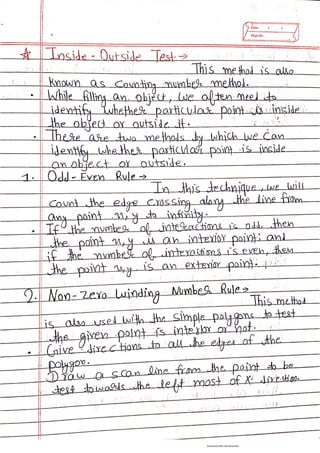 Date
Page No.
☆ Inside - Outside Test →
This method is also
known as Counting number method.
• While filling an object, we often need to
identify whether particular point is inside
the object or outside it.
• There are two methods by which we can
identify whether particular point is inside
an object or outside.
1. Odd - Even Rule →
In this technique, we will
count the edge crossing along the line from
any point x, y to infinity.
• If the number of interactions is odd, then
the point x, y is an interior point; and
if the number of interactions is even, then
the point x, y is an exterior point.
2. Non - Zero Winding Number Rule →
This method
is also used with the simple polygons to test
the given point is interior or not.
• Give directions to all the edges of the
polygon.
• Draw a scan line from the point to be
test towards the left most of X- direction.